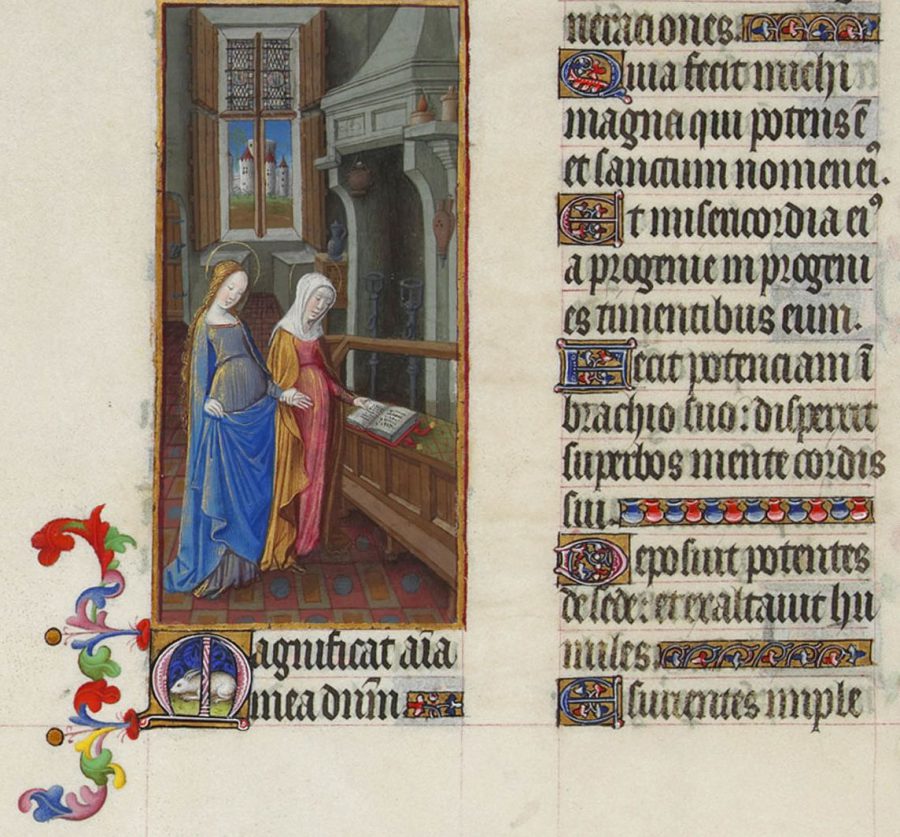 Magnificat aīa
mea dn̄m
neraciones.
Quia fecit michi
magna qui potens ē
et sanctum nomen eiꝰ.
Et misericordia eiꝰ
a progenie in progeni
es timentibus eum.
Fecit potenciam ī
brachio suo: dispersit
superbos mente cordis
sui.
Deposuit potentes
de sede: et exaltauit hu
miles
Esurientes imple